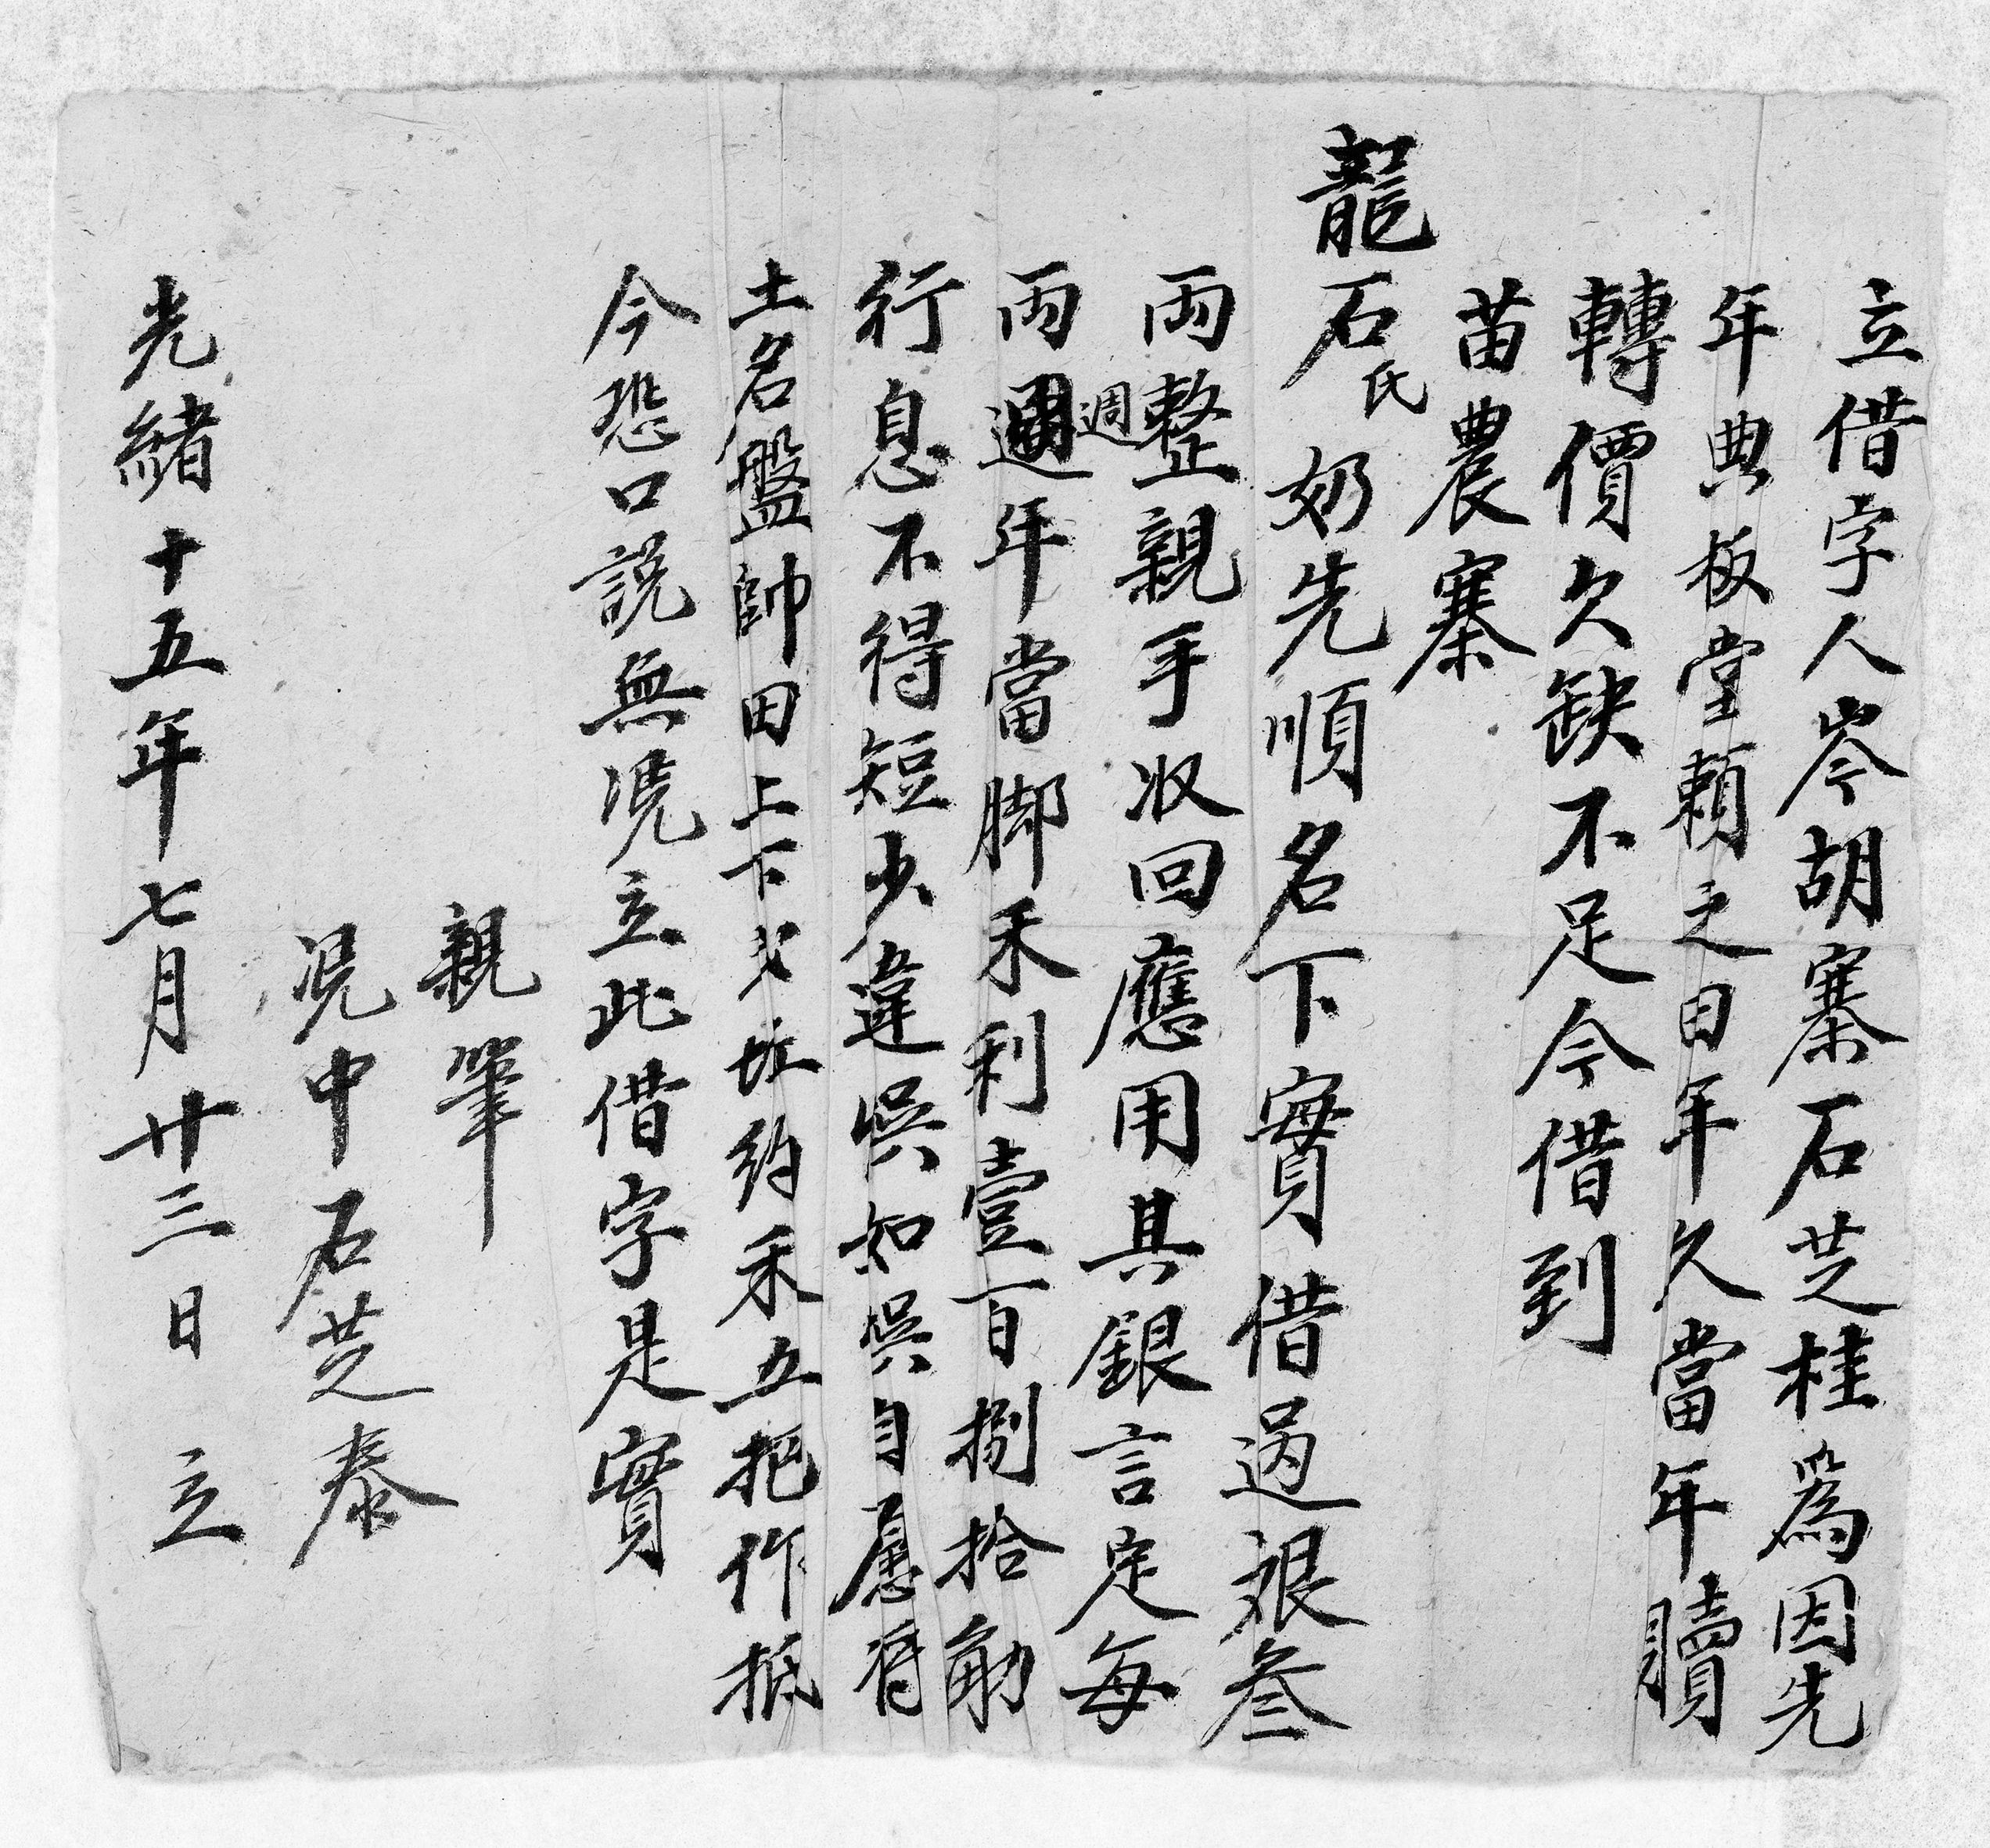 立借字人岑胡寨石芝桂為因先
年典板堂賴之日年久當年贖
轉價欠缺不足今借到
苗農寨
龍石氏奶先順名下實借過艮叁
兩整親手收回應用其銀言定每
兩週年當脚禾利壹百捌拾觔
週
行息不得短少違悮如悮自愿將
土名盤帥田上下弍坵約禾五把作抵
今恐口說無凴立此借字是實
親筆
凴中石芝泰
光緒十五年七月廿三日立